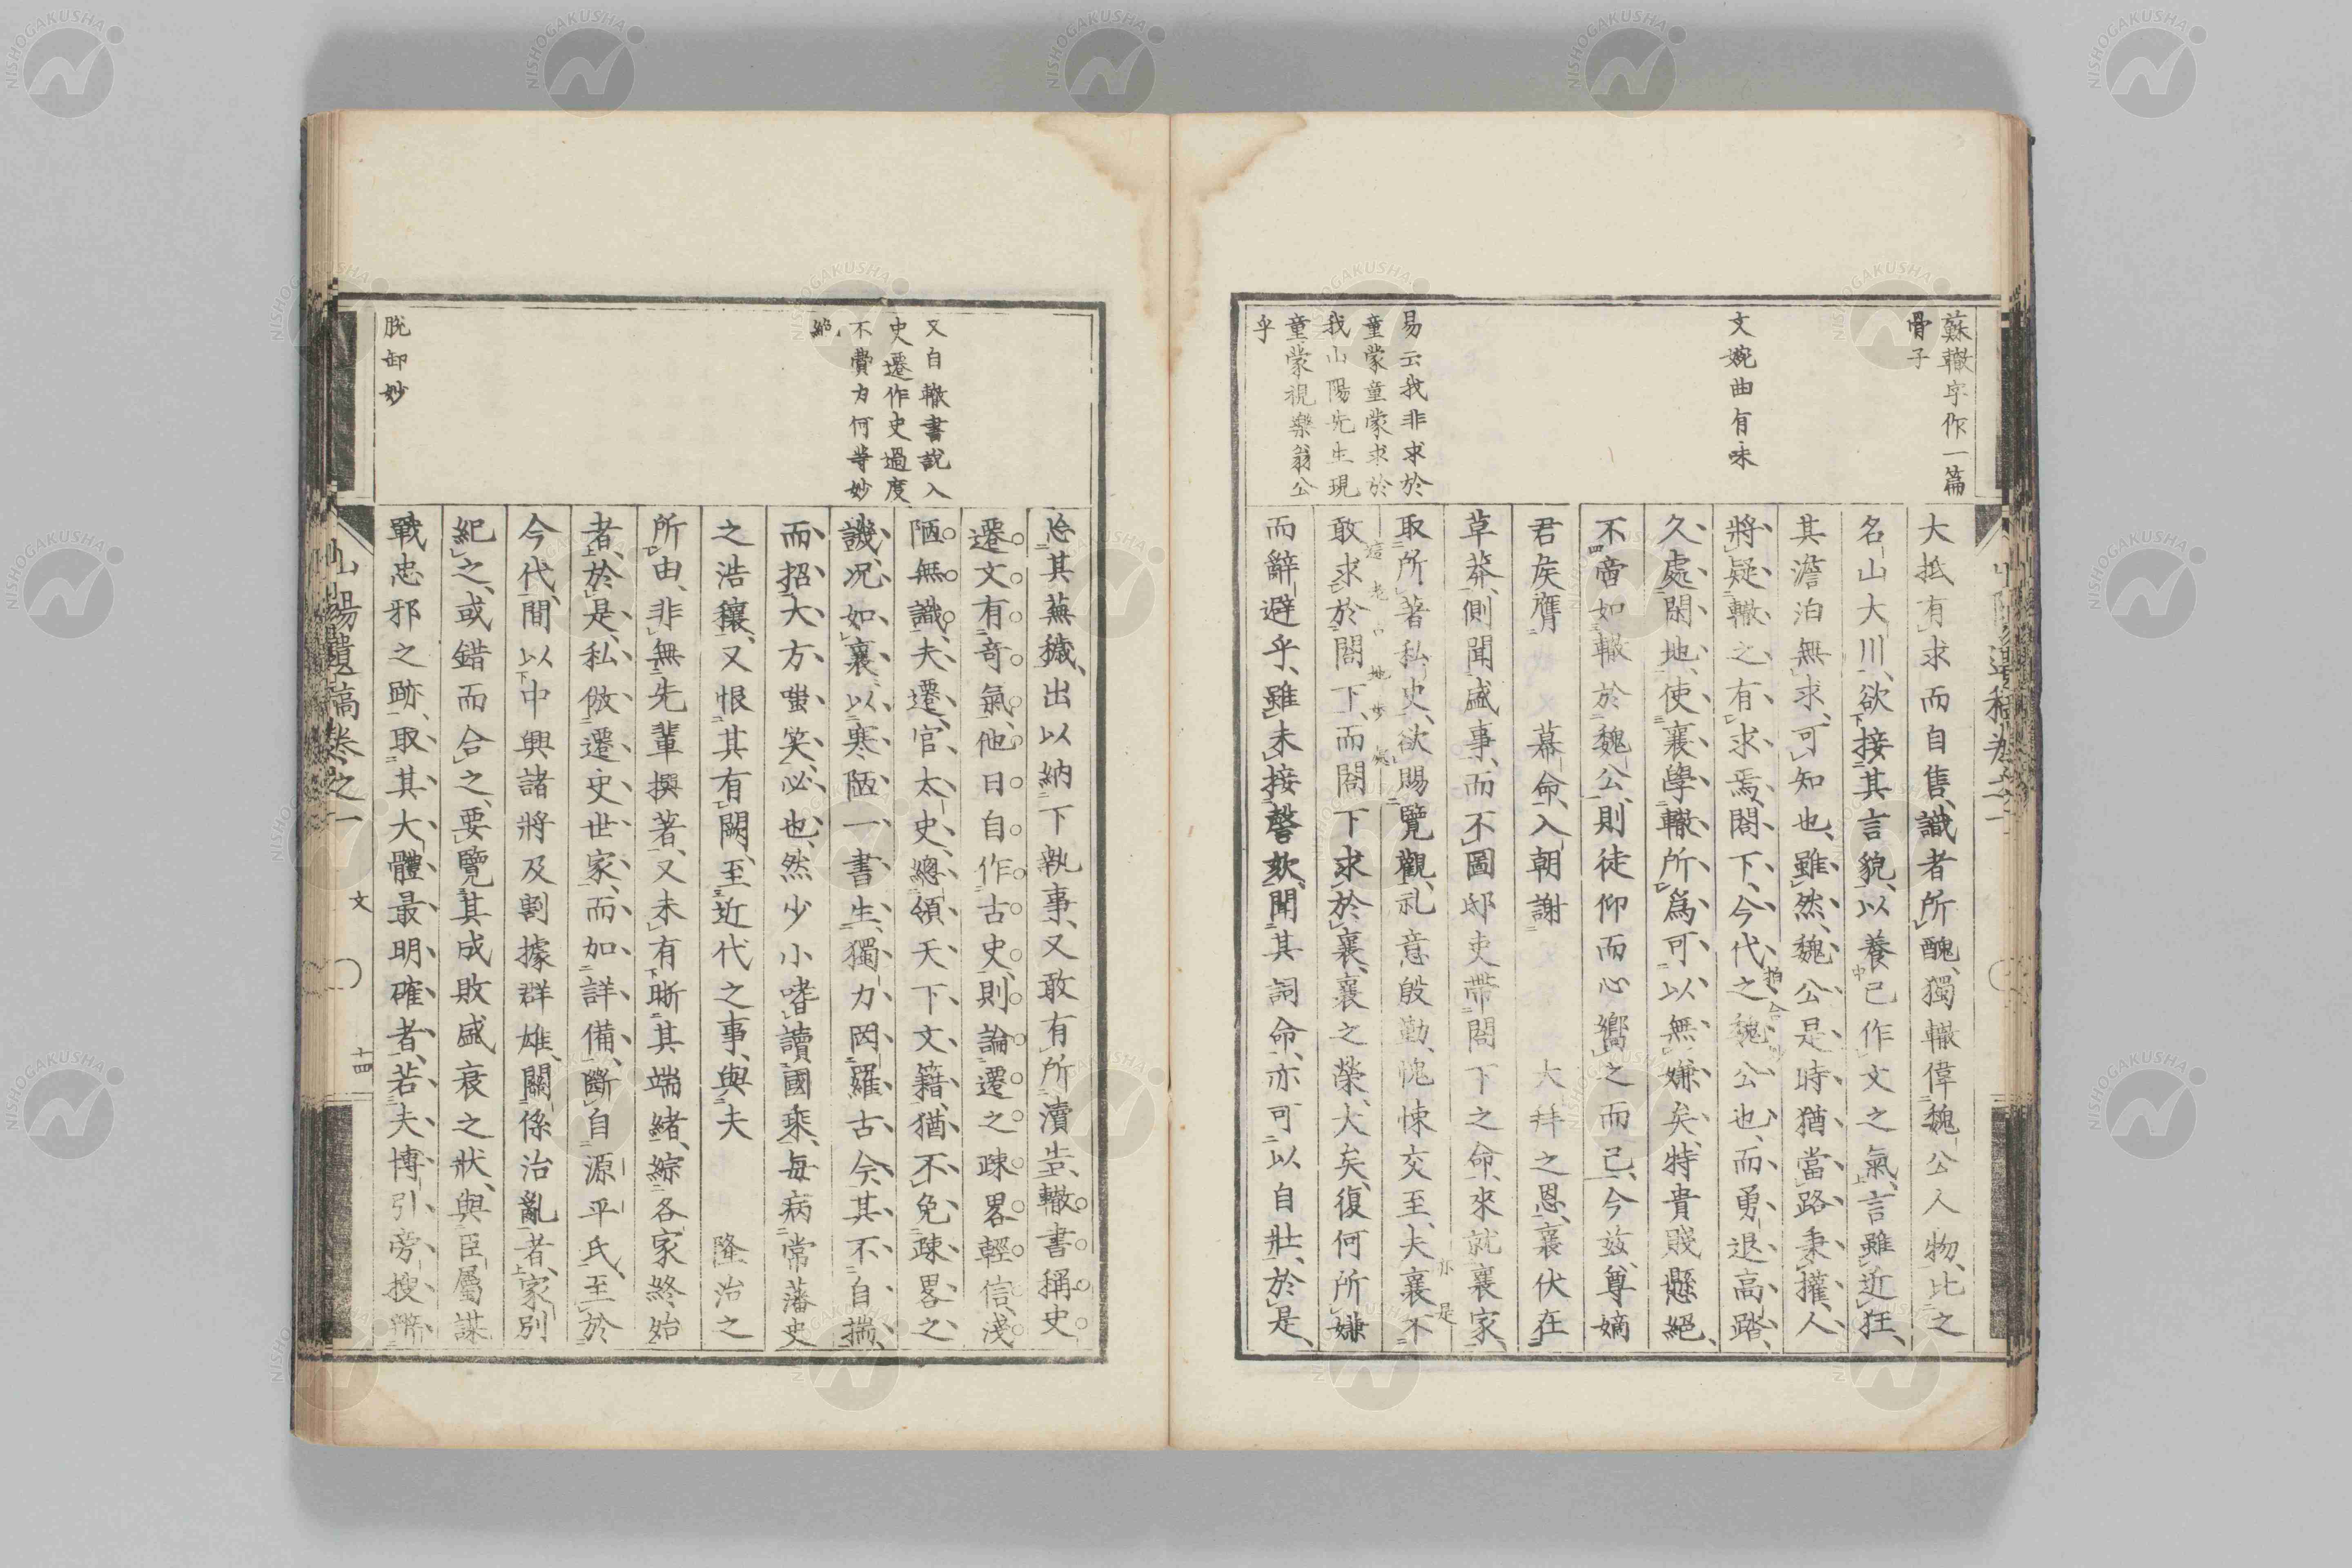 蘇轍字作一篇
骨子
文婉曲有味
易云我非求於
童蒙童蒙求於
我山陽先生現
童蒙視樂翁公
乎
大抵有求而自售識者所醜獨轍偉魏公人物比之
名山大川欲接其言貌以養己作文之氣言雖近狂
其澹泊無求可知也雖然魏公是時猶當路秉權人
將疑轍之有求焉閤下今代之魏公也而勇退高踏
久處閑地使襄學轍所爲可以無嫌矣特貴賤懸絕
不啻如轍於魏公則徒仰而心嚮之而已今茲尊嫡
君矦膺 幕命入朝謝 大拜之恩襄伏在
草莽側聞盛事而不圖邸吏帶閤下之命來就襄家
取所著私史欲賜覽觀礼意殷勤愧悚交至夫襄不
敢求於閤下而閤下求於襄襄之榮大矣復何所嫌
而辭避乎雖未接謦欬聞其詞命亦可以自壯於是
又自轍書說入
史遷作史過度
不費力何等妙
絕
脫卸妙
忘其蕪穢出以納下執事又敢有所瀆告轍書稱史
遷文有奇氣他日自作古史則論遷之疎畧輕信淺
陋無識夫遷官太史總領天下文籍猶不免疎畧之
譏况如襄以寒陋一書生獨力罔羅古今其不自揣
而招大方嗤笑必也然少小嗜讀國乘每病常藩史
之浩穰又恨其有闕至近代之事與夫 隆治之
所由非無先輩撰著又未有晰其端緒綜各家終始
者於是私倣遷史世家而加詳備斷自源平氏至於
今代間以中興諸將及割據群雄關係治亂者家別
紀之或錯而合之要覽其成敗盛衰之狀與臣屬謀
戰忠邪之跡取其大體最明確者若夫博引旁搜
山陽遺稿卷之一
文
十四